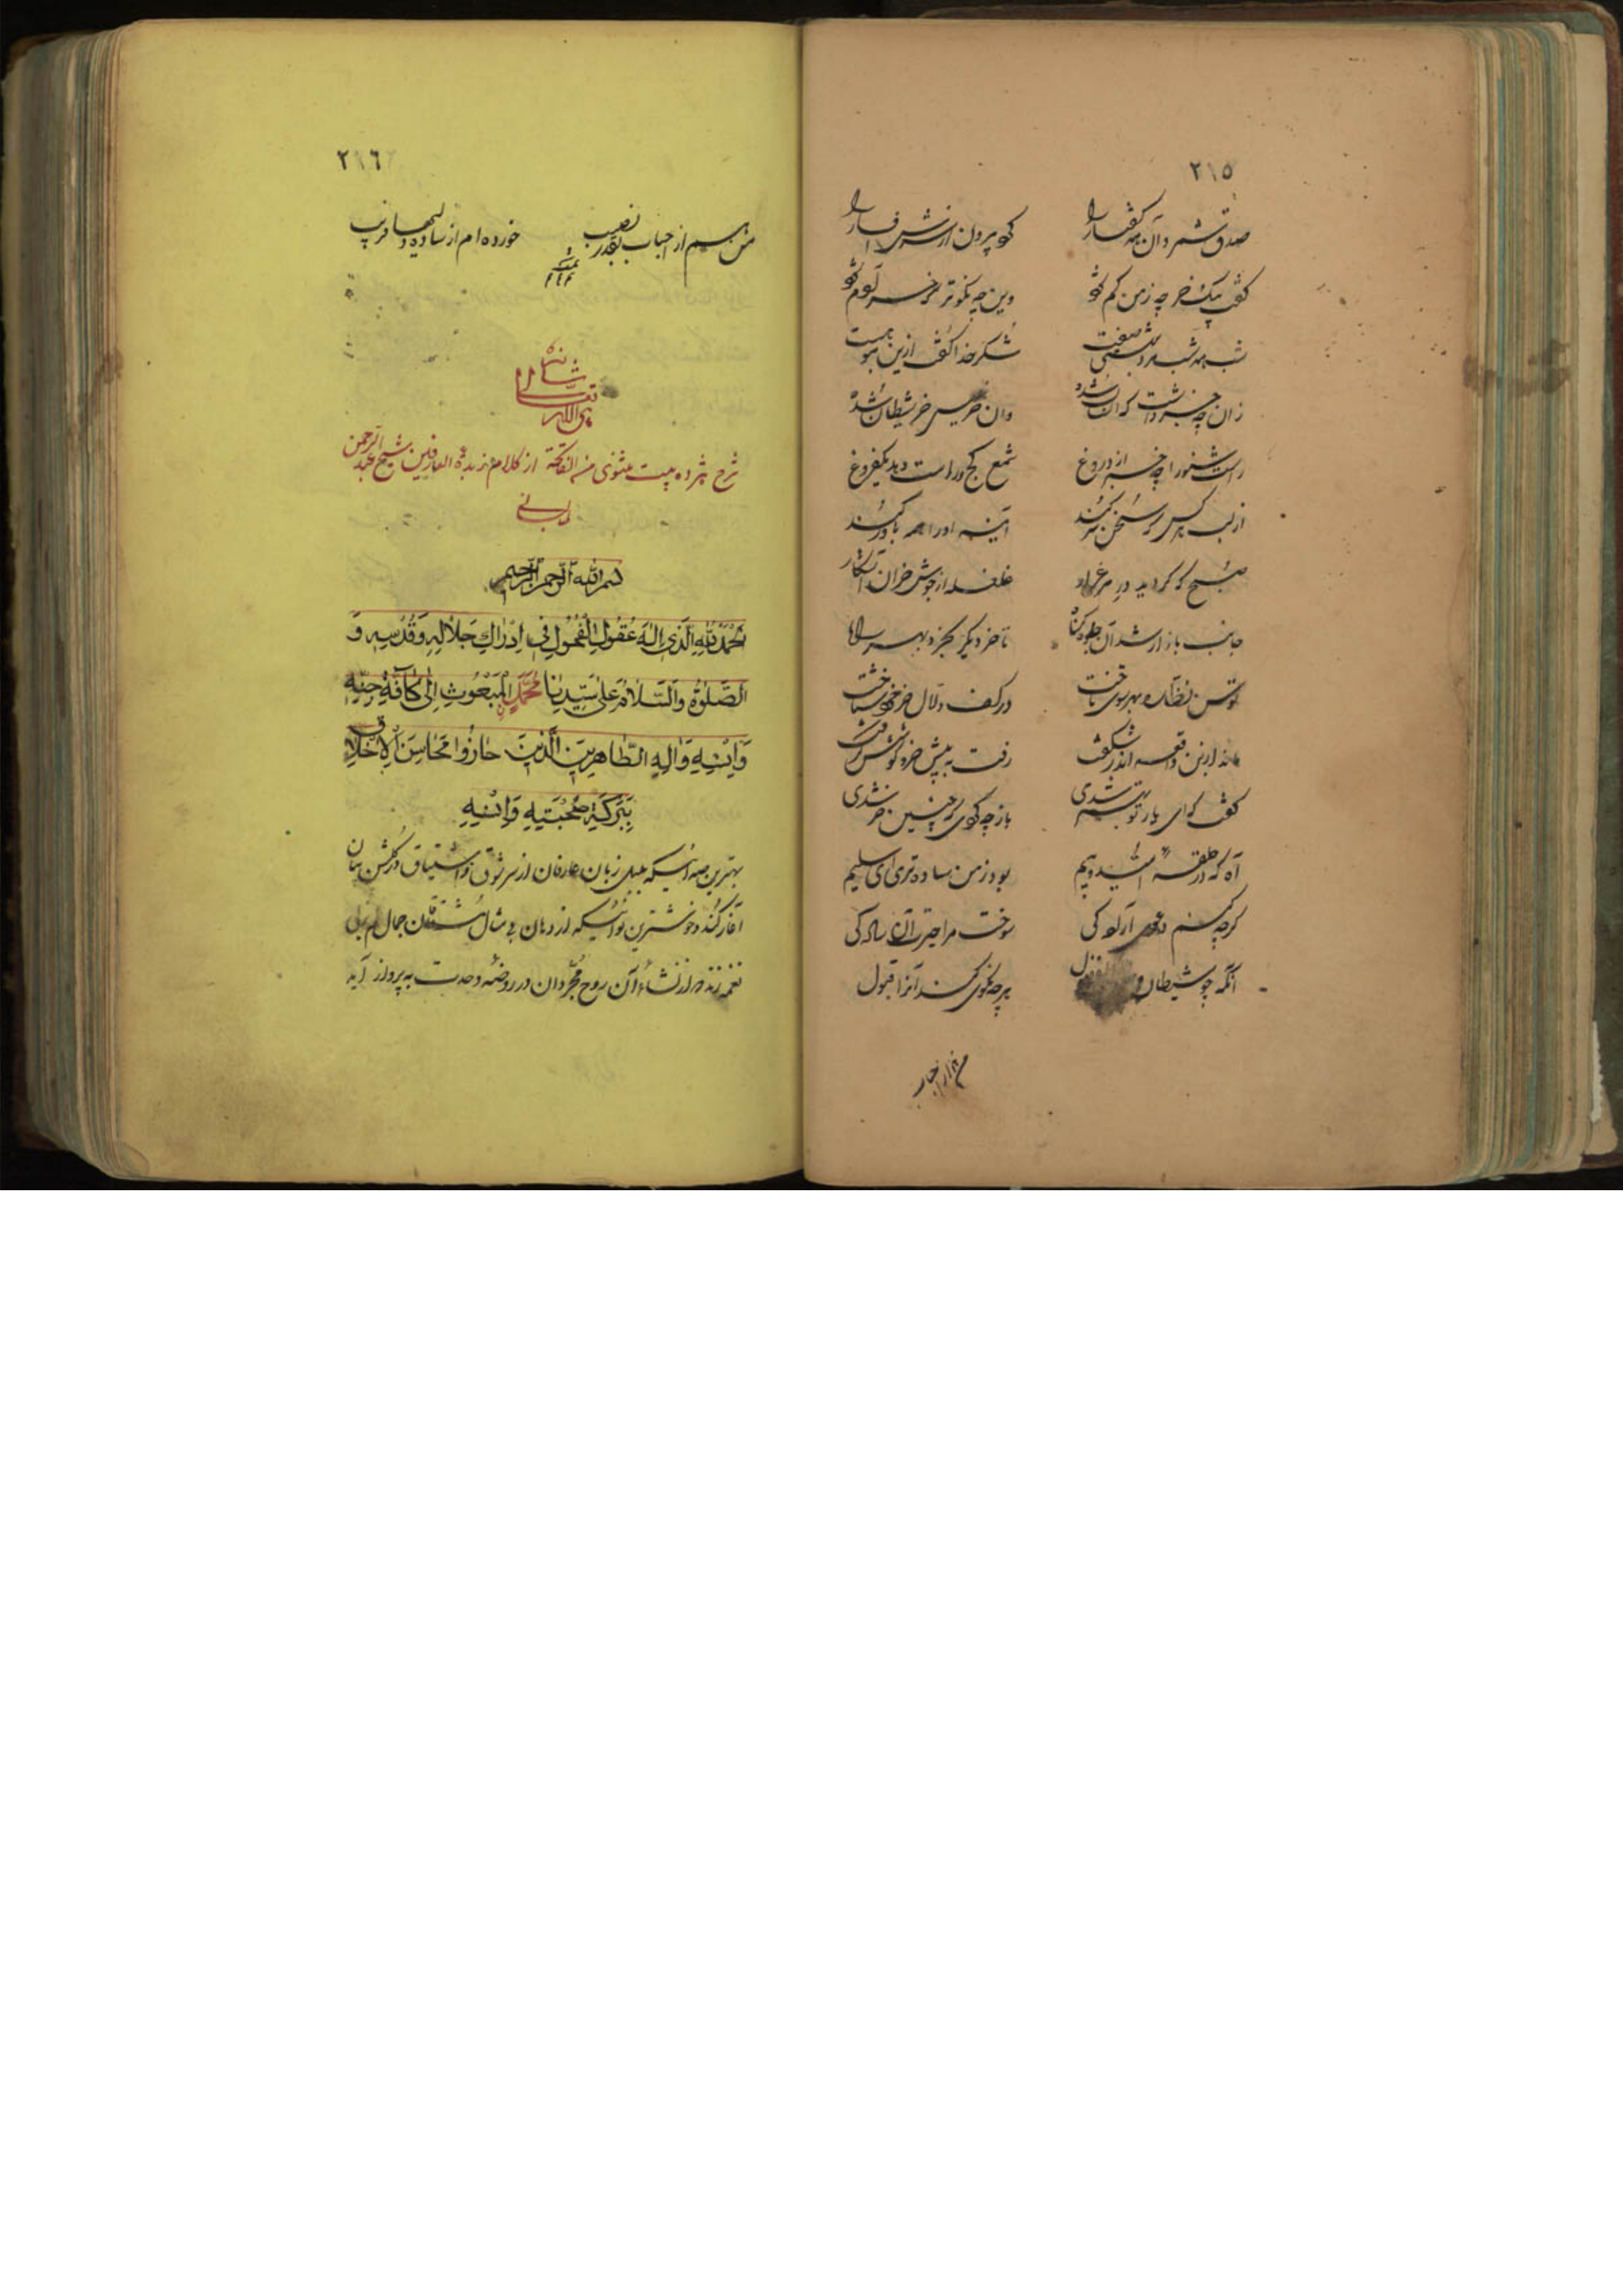 ٢١٥
صدق شمرد آن همه گفتار را
گفت یک خر چه ز من کم شود
وین چه نکوتر که خر آدم شود
شب همه شب
شکر خدا گفت ازین
زان چه خبر داشت که انسان شده
وان خر شیطان شده
راست شنو را چه خبر از دروغ
شمع کج و راست دهد یک فروغ
از لب هر کس که سخن سر کند
آینه او را همه باور کند
صبح که گردید در
غلغله از جوش خران آشکار
جانب بازار شد آن جلوه‌گاه
تا خر دیگر بخرد بهر راه
توسن نظاره بهر سوی تاخت
در کف دلال خر خود شناخت
ماند ازین واقعه اندر شگفت
رفت به پیش خر و گوشش گرفت
گفت که ای یار تو بهتر شدی
باز چه کردی که چنین خر شدی
آه که در حلقه امید و بیم
بود ز من ساده‌تری ای سلیم
گرچه کنم دعوی آزادگی
سوخت مرا حسرت آن سادگی
آنکه چو شیطان
هر چه بگوی کند آنرا قبول
من هم از احباب
٢١٦
من هم از احباب بقدر نصیب
خورده‌ام از ساده‌دلیها فریب
تمت
هو الله تعالى شانه
شرح هژده بیت مثنوی من الفاتحة از کلام زبدة العارفین شیخ عبد الرحمن
بسم الله الرحمن الرحیم
الحمد لله الذی اله عقول الفحول فی ادراك جلاله وقدسه و
الصلوة والسلام علی سیدنا محمد المبعوث الی كافة جنه
وانسه واله الطاهرین الذین حازوا محاسن الاخلاق
ببركة صحبته وانسه
بهترین صدائیکه بلبل زبان عارفان از سر شوق و اشتیاق در گلشن بیان
آغاز کند و خوشترین نوائیکه از دهان بی مثال مشتاقان جمال لم یزلی
نغمه زند و از نشاء آن روح مجردان در روضه وحدت به پرواز آید